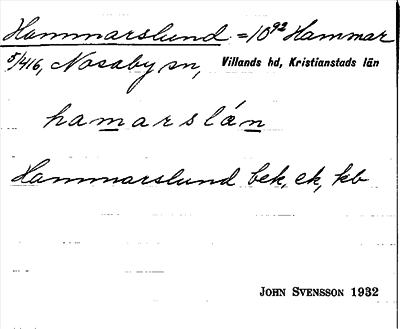 Hammarslund = 10⁹² Hammar
5/416, Nosaby sn, Villands hd, Kristianstads län
hamarslán
Hammarslund bek, ek, kb
JOHN SVENSSON 1932